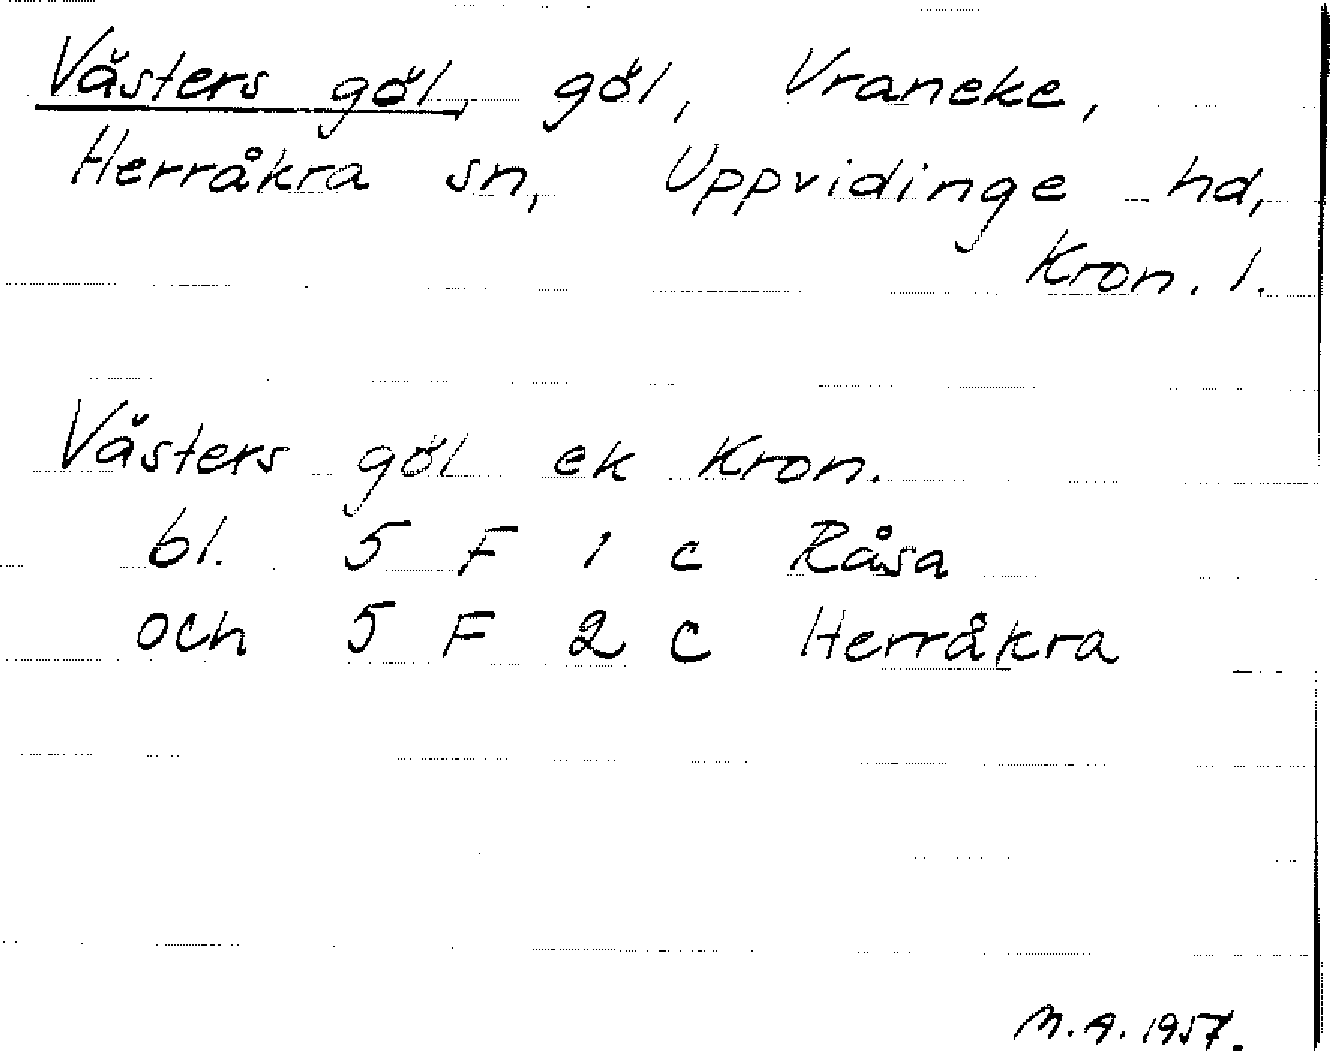 Västers göl, göl, Vraneke,
Herråkra sn, Uppvidinge hd,
Kron. l.
Västers göl ek Kron.
bl. 5 F 1 c Råsa
och 5 F 2 c Herråkra
M.A. 1957.